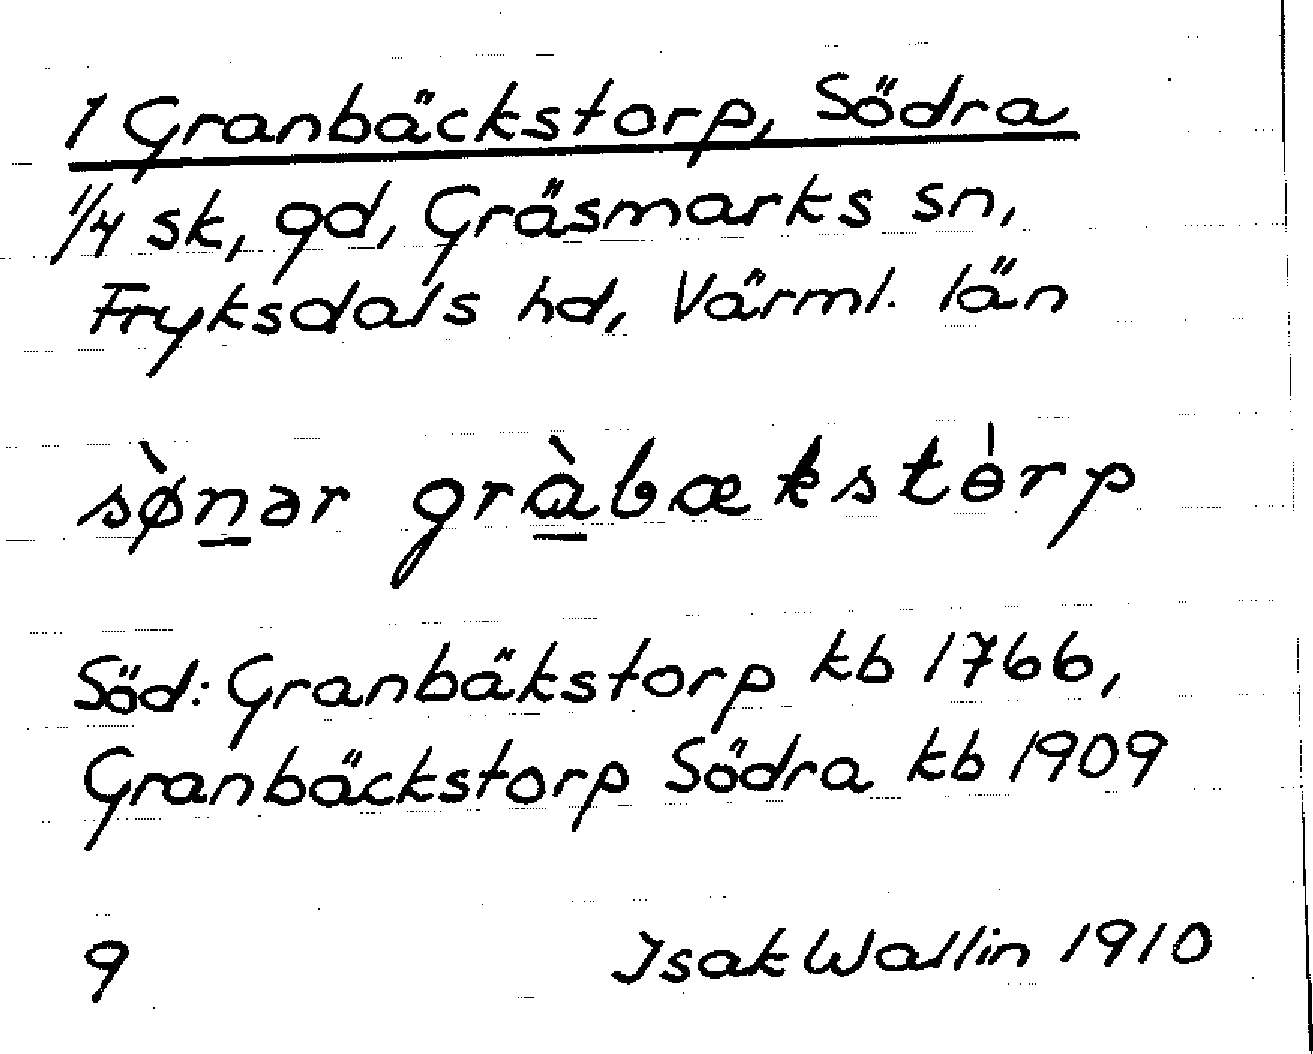 1 Granbäckstorp, Södra
1/4 sk, gd, Gräsmarks sn,
Fryksdals hd, Värml. län
sø̀n̲ər grɑ̲̀bækstɵ̍rp
Söd: Granbäkstorp kb 1766,
Granbäckstorp Södra kb 1909
9 Isak Wallin 1910